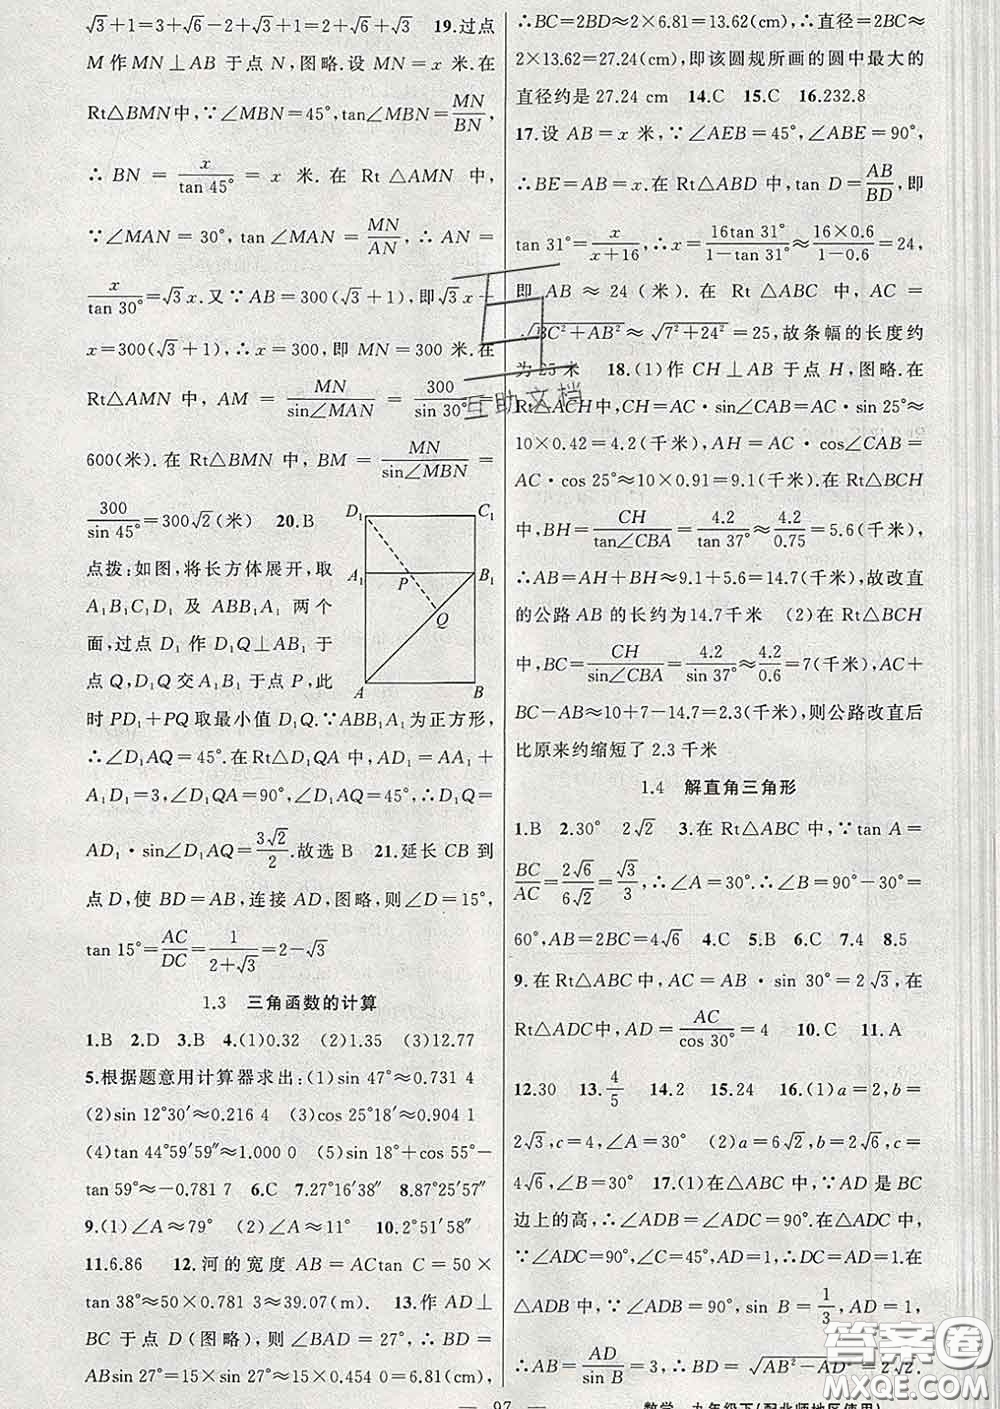 √3+1=3+√6-2+√3+1=2+√6+√3 19.过点
M作MN⊥AB于点N,图略.设MN=x米.在
Rt△BMN中,∵∠MBN=45°,tan∠MBN=MN/BN,
∴BN=x/tan 45°=x米.在Rt△AMN中,
∵∠MAN=30°,tan∠MAN=MN/AN,∴AN=
x/tan30°=√3x.又∵AB=300(√3+1),即√3x+
x=300(√3+1),∴x=300,即MN=300米.在
Rt△AMN中,AM=MN/sin∠MAN=300/sin 30°=
600(米).在Rt△BMN中,BM=MN/sin∠MBN=
300/sin 45°=300√2(米) 20.B
点拨:如图,将长方体展开,取
A₁B₁C₁D₁及ABB₁A₁两个
面,过点D₁作D₁Q⊥AB₁于
点Q,D₁Q交A₁B₁于点P,此
D₁ C₁
A₁ P B₁
Q
A B
时PD₁+PQ取最小值D₁Q.∵ABB₁A₁为正方形,
∴∠D₁AQ=45°.在Rt△D₁QA中,AD₁=AA₁+
A₁D₁=3,∠D₁QA=90°,∠D₁AQ=45°,∴D₁Q=
AD₁·sin∠D₁AQ=3√2/2.故选B 21.延长CB到
点D,使BD=AB,连接AD,图略,则∠D=15°,
tan 15°=AC/DC=1/(2+√3)=2-√3
1.3 三角函数的计算
1.B 2.D 3.B 4.(1)0.32 (2)1.35 (3)12.77
5.根据题意用计算器求出:(1)sin 47°≈0.731 4
(2)sin 12°30′≈0.216 4 (3)cos 25°18′≈0.904 1
(4)tan 44°59′59″≈1.000 0 (5)sin 18°+cos 55°-
tan 59°≈-0.781 7 6.C 7.27°16′38″ 8.87°25′57″
9.(1)∠A≈79° (2)∠A≈11° 10.2°51′58″
11.6.86 12.河的宽度AB=ACtan C=50×
tan 38°≈50×0.781 3≈39.07(m). 13.作AD⊥
BC于点D(图略),则∠BAD=27°,∴BD=
ABsin 27°=15×sin 27°≈15×0.454 0=6.81(cm),
∴BC=2BD≈2×6.81=13.62(cm),∴直径=2BC≈
2×13.62=27.24(cm),即该圆规所画的圆中最大的
直径约是27.24 cm 14.C 15.C 16.232.8
17.设AB=x米,∵∠AEB=45°,∠ABE=90°,
∴BE=AB=x.在Rt△ABD中,tan D=AB/BD,即
tan 31°=x/(x+16),∴x=16tan 31°/(1-tan 31°)≈(16×0.6)/(1-0.6)=24,
即AB≈24(米).在Rt△ABC中,AC=
√(BC²+AB²)≈√(7²+24²)=25,故条幅的长度约
为25米 18.(1)作CH⊥AB于点H,图略.在
Rt△ACH中,CH=AC·sin∠CAB=AC·sin 25°≈
10×0.42=4.2(千米),AH=AC·cos∠CAB=
AC·cos 25°≈10×0.91=9.1(千米).在Rt△BCH
中,BH=CH/tan∠CBA=4.2/tan 37°≈4.2/0.75=5.6(千米),
∴AB=AH+BH≈9.1+5.6=14.7(千米),故改直
的公路AB的长约为14.7千米 (2)在Rt△BCH
中,BC=CH/sin∠CBA=4.2/sin 37°≈4.2/0.6=7(千米),AC+
BC-AB≈10+7-14.7=2.3(千米),则公路改直后
比原来约缩短了2.3千米
1.4 解直角三角形
1.B 2.30° 2√2 3.在Rt△ABC中,∵tan A=
BC/AC=2√6/6√2=√3/3,∴∠A=30°.∴∠B=90°-30°=
60°,AB=2BC=4√6 4.C 5.B 6.C 7.4 8.5
9.在Rt△ABC中,AC=AB·sin 30°=2√3,在
Rt△ADC中,AD=AC/cos 30°=4 10.C 11.A
12.30 13.4/5 14.2 15.24 16.(1)a=2,b=
2√3,c=4,∠A=30° (2)a=6√2,b=2√6,c=
4√6,∠B=30° 17.(1)在△ABC中,∵AD是BC
边上的高,∴∠ADB=∠ADC=90°.在△ADC中,
∵∠ADC=90°,∠C=45°,AD=1,∴DC=AD=1.在
△ADB中,∵∠ADB=90°,sin B=1/3,AD=1,
∴AB=AD/sin B=3,∴BD=√(AB²-AD²)=2√2.
— 97 — 数学 九年级下(配北师地区使用)
互助文档
答案圈
MXQE.COM